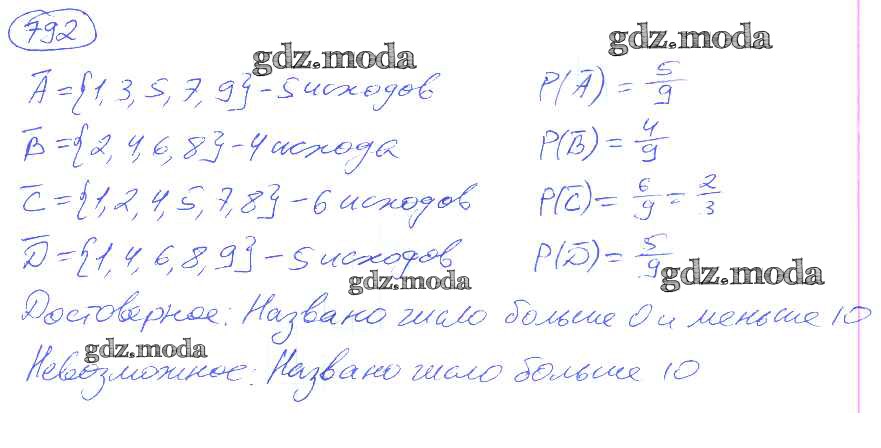 792
gdz.moda
gdz.moda
A̅ = {1, 3, 5, 7, 9} - 5 исходов P(A̅) = 5/9
B̅ = {2, 4, 6, 8} - 4 исхода P(B̅) = 4/9
C̅ = {1, 2, 4, 5, 7, 8} - 6 исходов P(C̅) = 6/9 = 2/3
D̅ = {1, 4, 6, 8, 9} - 5 исходов P(D̅) = 5/9
gdz.moda
gdz.moda
Достоверное: Названо число больше 0 и меньше 10
gdz.moda
Невозможное: Названо число больше 10